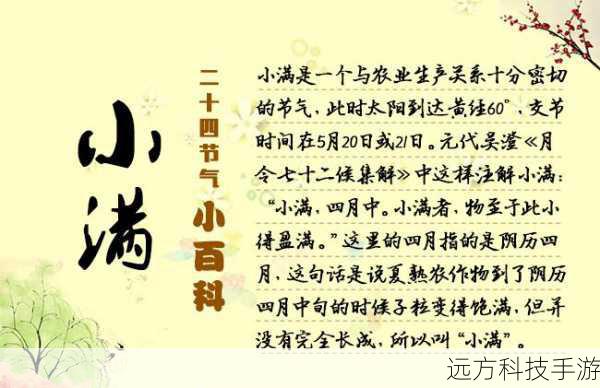 小满
二十四节气小百科
小满是一个与农业生产关系十分密切
的节气，此时太阳到达黄经60°，交节
时间在5月20日或21日。元代吴澄《月
令七十二候集解》中这样注解小满：
“小满，四月中。小满者，物至于此小
得盈满。”这里的四月指的是阴历四
月，这句话是说夏熟农作物到了阴历
四月中旬的时候子粒变得饱满，但并
没有完全长成，所以叫“小满”。
远方科技手游